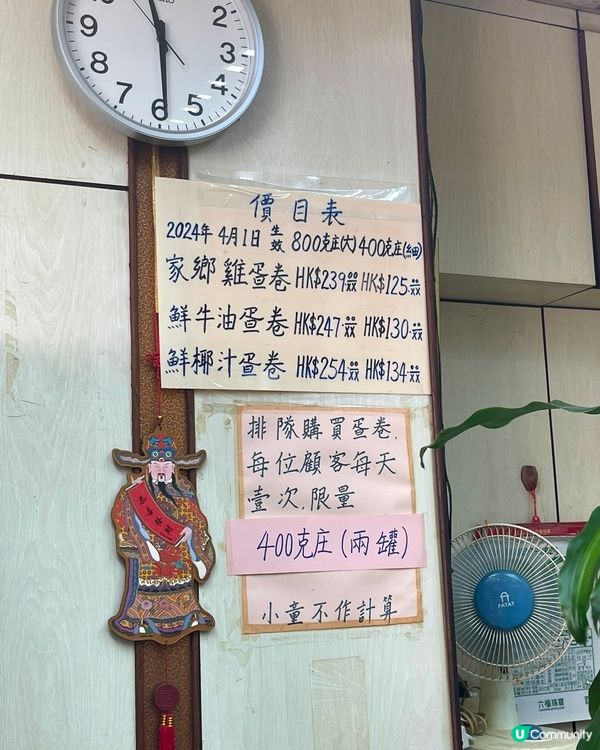 10
2
9
3
8
4
7
5
6
價目表
2024年 4月1日 生效 800克庄(大) 400克庄(細)
家鄉雞蛋卷 HK$239.xx HK$125.xx
鮮牛油蛋卷 HK$247.xx HK$130.xx
鮮椰汁蛋卷 HK$254.xx HK$134.xx
排隊購買蛋卷,
每位顧客每天
壹次,限量
400克庄(兩罐)
小童不作計算
恭喜發財
FATAT
六福珠寶
U Community